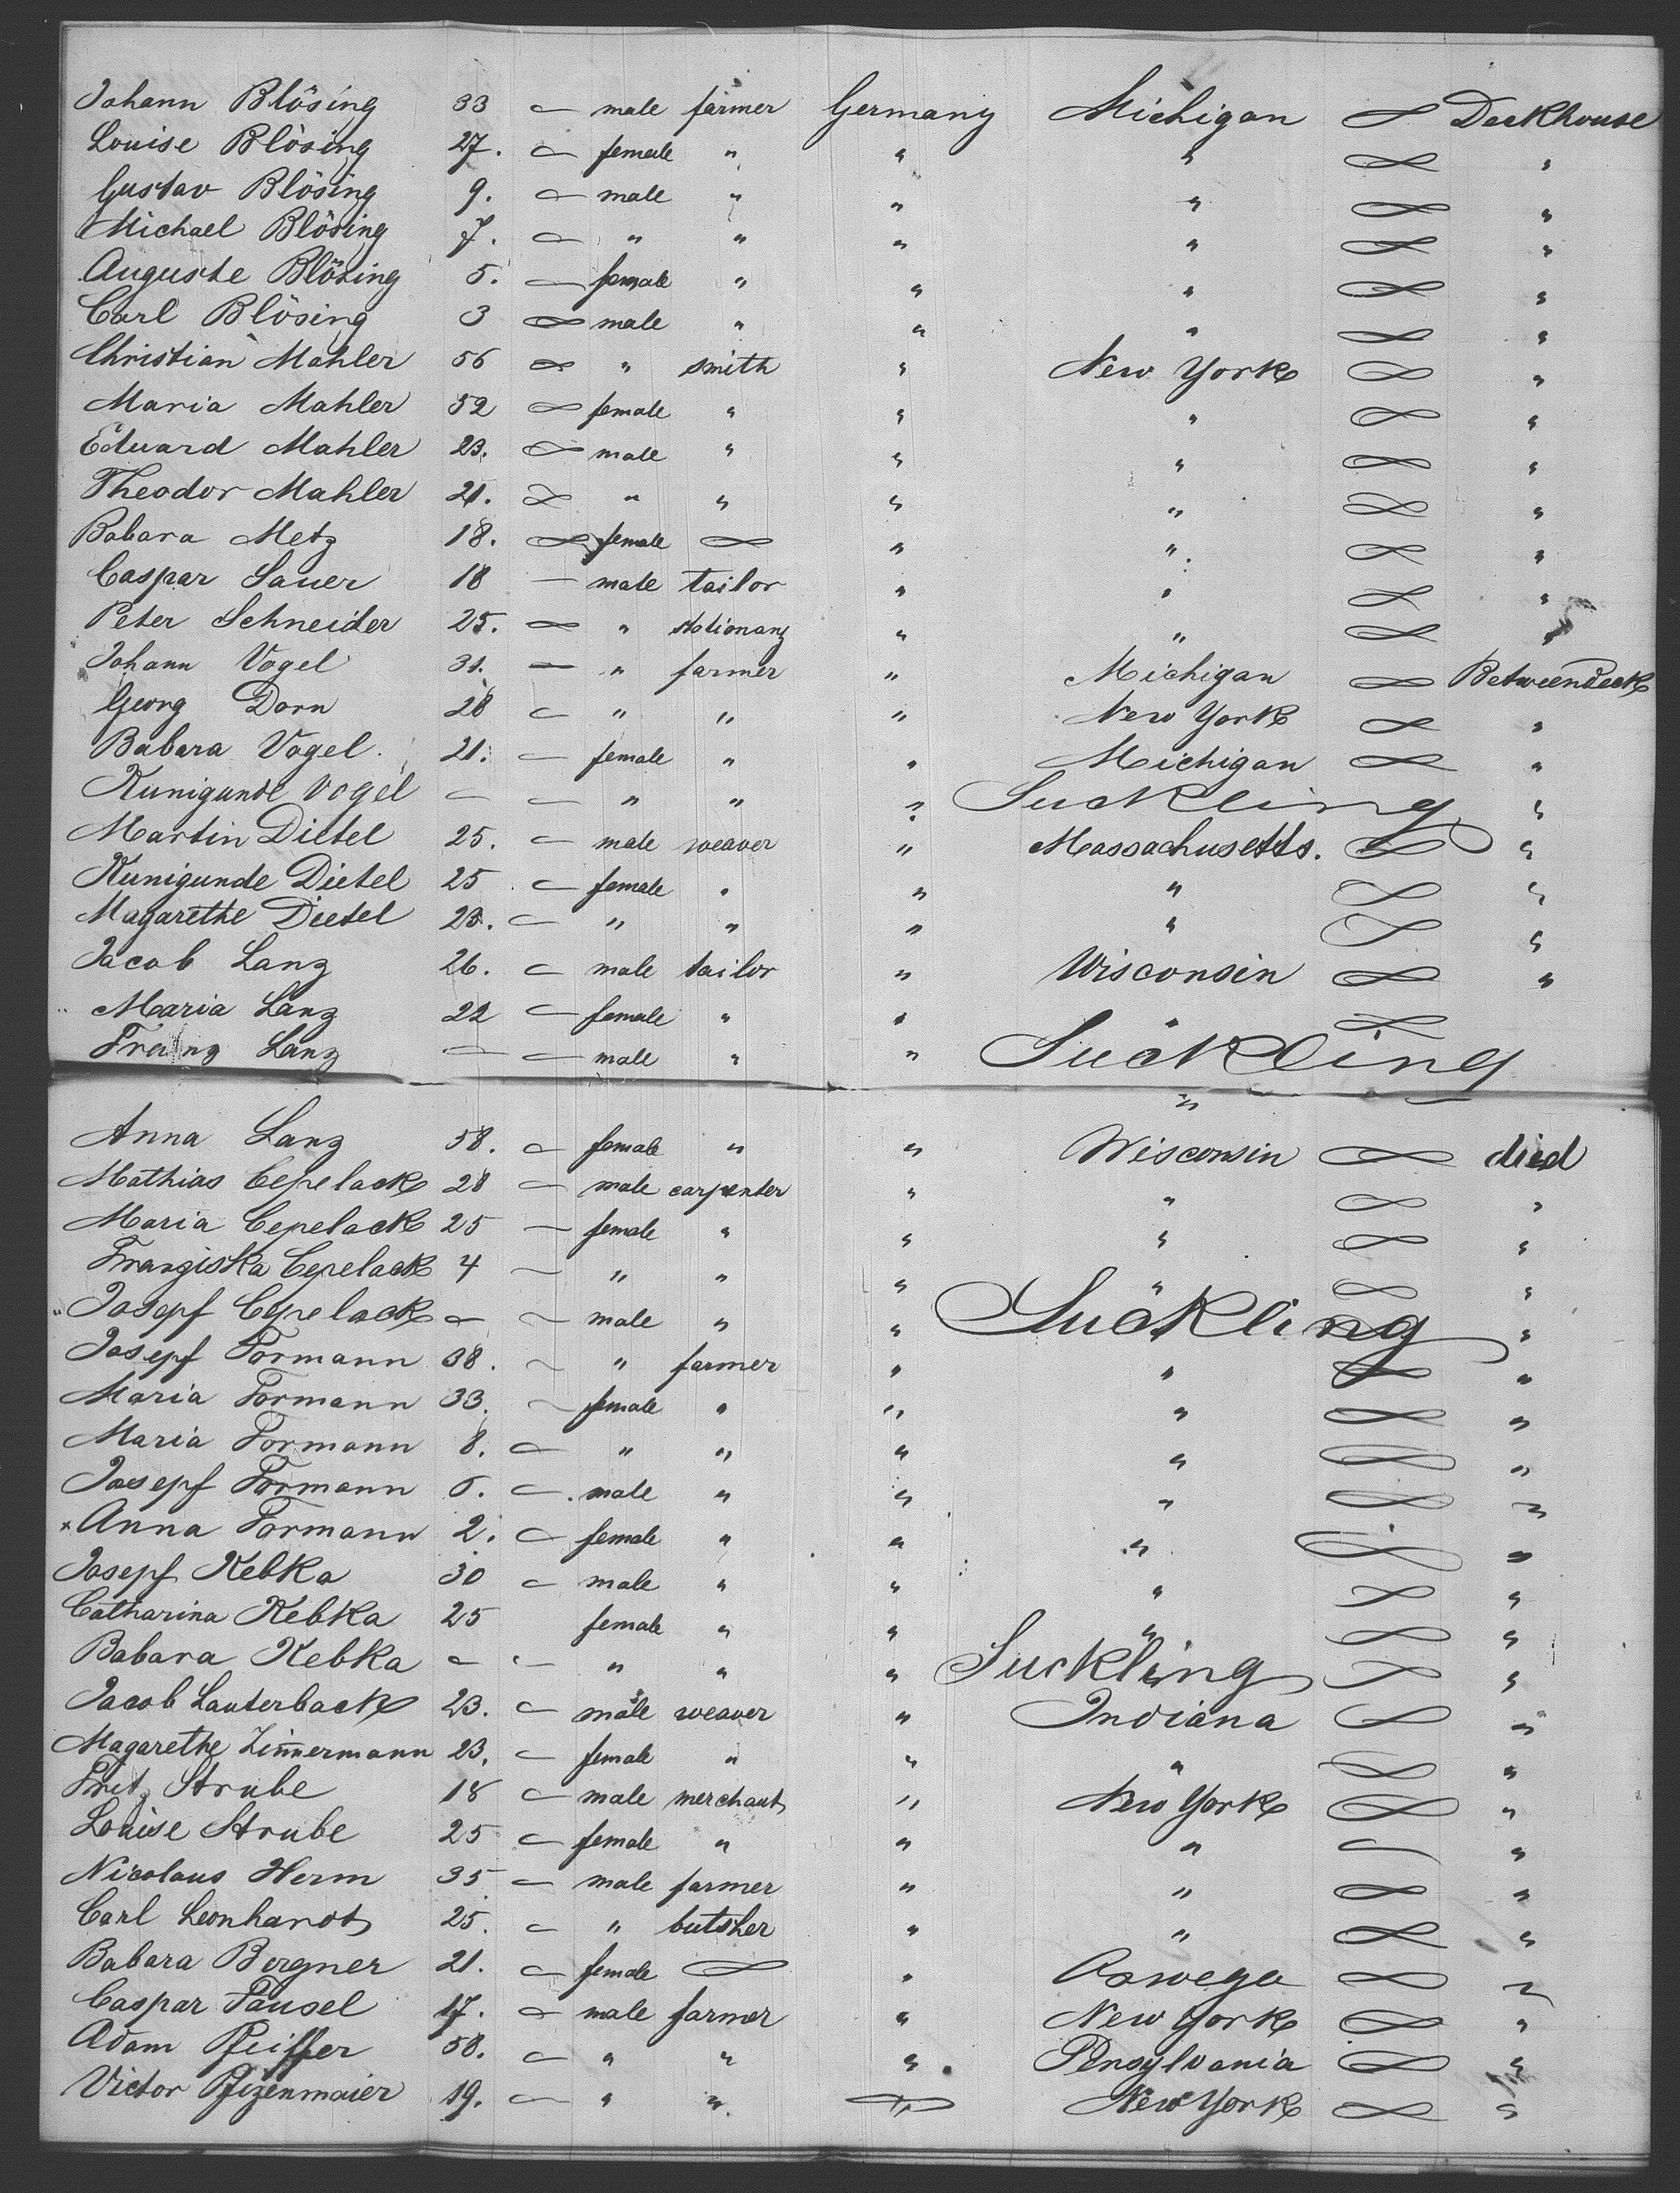 Johann Blösing 33 — male farmer Germany Michigan — Deckhouse
Louise Blösing 27. — female " " " — "
Gustav Blösing 9. — male " " " — "
Michael Blösing 7. — " " " " — "
Auguste Blösing 5. — female " " " — "
Carl Blösing 3 — male " " " — "
Christian Mahler 56 — " smith " New York — "
Maria Mahler 52 — female " " " — "
Eduard Mahler 23. — male " " " — "
Theodor Mahler 21. — " " " " — "
Babara Metz 18. — female — " " — "
Caspar Sauer 18 — male tailor " " — "
Peter Schneider 25. — " stationary " " — "
Johann Vogel 31. — " farmer " Michigan — Betweendeck
Georg Dorn 28 — " " " New York — "
Babara Vogel 21. — female " " Michigan — "
Kunigunde Vogel — — " " " Suckling "
Martin Dietel 25. — male weaver " Massachusetts. — "
Kunigunde Dietel 25 — female " " " — "
Magarethe Dietel 23. — " " " " — "
Jacob Lanz 26. — male tailor " Wisconsin — "
Maria Lanz 22 — female " " " —
Franz Lanz — — male " " Suckling
"
Anna Lanz 58. — female " " Wisconsin — died
Mathias Cepelack 28 — male carpenter " " — "
Maria Cepelack 25 — female " " " — "
Franziska Cepelack 4 — " " " " — "
Josepf Cepelack — — male " " Suckling "
Josepf Formann 38. — " farmer " " — "
Maria Formann 33. — female " " " — "
Maria Formann 8. — " " " " — "
Josepf Formann — male " " " — "
× Anna Formann 2. — female " " " — "
Josepf Kebka 30 — male " " " — "
Catharina Kebka 25 female " " " — "
Babara Kebka — — " " " Suckling — "
Jacob Lauterback 23. — male weaver " Indiana — "
Magarethe Zim̄ermann 23. — female " " " — "
Fritz Strube 18 — male merchant " New York — "
Louise Strube 25 — female " " " — "
Nicolaus Herm 35 — male farmer " " — "
Carl Leonhardt 25. — " butsher " " — "
Babara Bergner 21. — female — " Oswego — "
Caspar Fausel 17. — male farmer " New York — "
Adam Pfeiffer 58. — " " " Pensylvania — "
Victor Pfizenmaier 19. — " " " New York — "